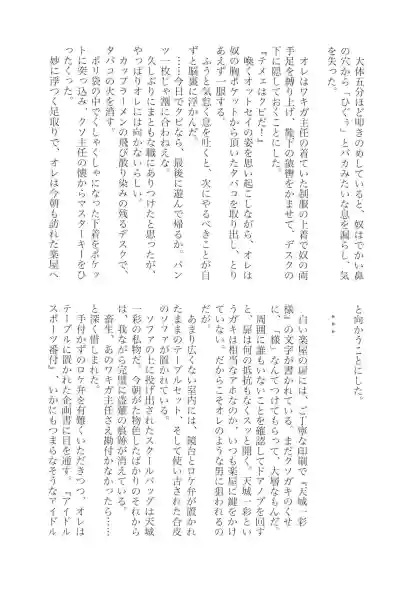 大体五分ほど叩きのめしていると、奴はでかい鼻
の穴から「ひぐぅ」とバカみたいな息を漏らし、気
を失った。
オレはワキガ主任の着ていた制服の上着で奴の両
手足を縛り上げ、靴下の猿轡をかませて、デスクの
下に隠しておくことにした。
『テメェはクビだ！』
喚くオットセイの姿を思い起こしながら、オレは
奴の胸ポケットから頂いたタバコを取り出し、とり
あえず一服する。
ふうと気怠く息を吐くと、次にやるべきことが自
ずと脳裏に浮かんだ。
……今日でクビなら、最後に遊んで帰るか。パン
ツ一枚じゃ割に合わねえな。
久しぶりにまともな職にありつけたと思ったが、
やっぱりオレには向かないらしい。
カップラーメンの飛び散り染みの残るデスクで、
タバコの火を消す。
ポリ袋の中でしゃくしゃになった下着をポケッ
トに突っ込み、クソ主任の懐からマスターキーをひ
ったくった。
妙に浮つく足取りで、オレは今朝も訪れた楽屋へ
と向かうことにした。
***
白い楽屋の扉には、ご丁寧な印刷で『天城一彩
様』の文字が書かれている。まだクソガキのくせ
に、「様」なんてつけてもらって、大層なもんだ。
周囲に誰もいないことを確認してドアノブを回す
と、扉は何の抵抗もなくスッと開く。天城一彩とい
うガキは相当なアホなのか、いつも楽屋に鍵をかけ
ていない。だからこそオレのような男に狙われるの
だが。
あまり広くない室内には、鏡台とロケ弁が置かれ
たままのテーブルセット、そして使い古された合皮
のソファが置かれている。
ソファの上に投げ出されたスクールバッグは天城
一彩の私物だ。今朝がた物色したばかりのそれから
は、我ながら完璧に盗難の痕跡が消えている。
畜生、あのワキガ主任さえ勘付かなかったら……
と深く惜しまれた。
手付かずのロケ弁を有難くいただきつつ、オレは
テーブルに置かれた企画書に目を通す。『アイドル
スポーツ番付』、いかにもつまらなそうなアイドル